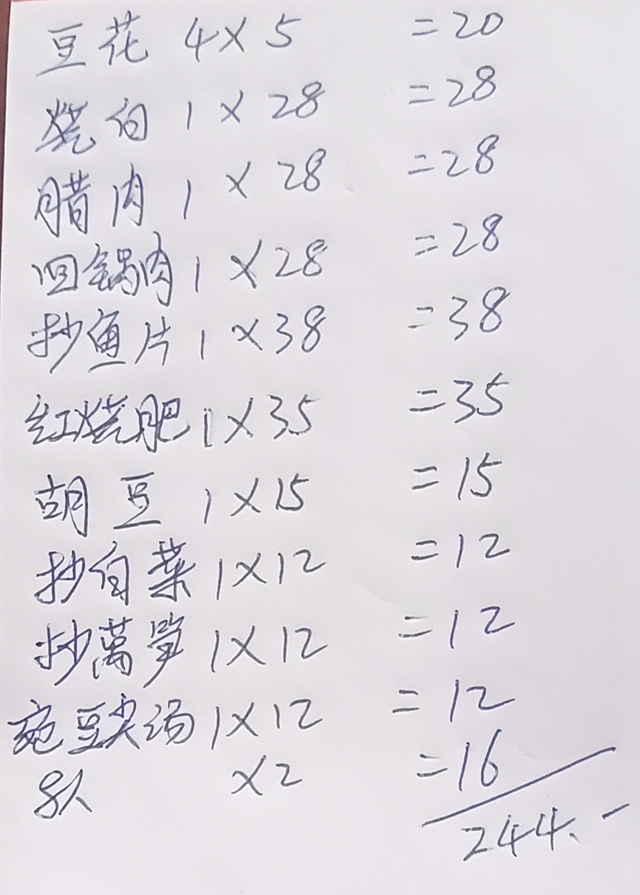 豆花 4×5 =20
烧白 1×28 =28
腊肉 1×28 =28
回锅肉 1×28 =28
抄鱼片 1×38 =38
红烧肥 1×35 =35
胡豆 1×15 =15
抄白菜 1×12 =12
抄莴笋 1×12 =12
宛豆尖汤 1×12 =12
8人 ×2 =16
244.-